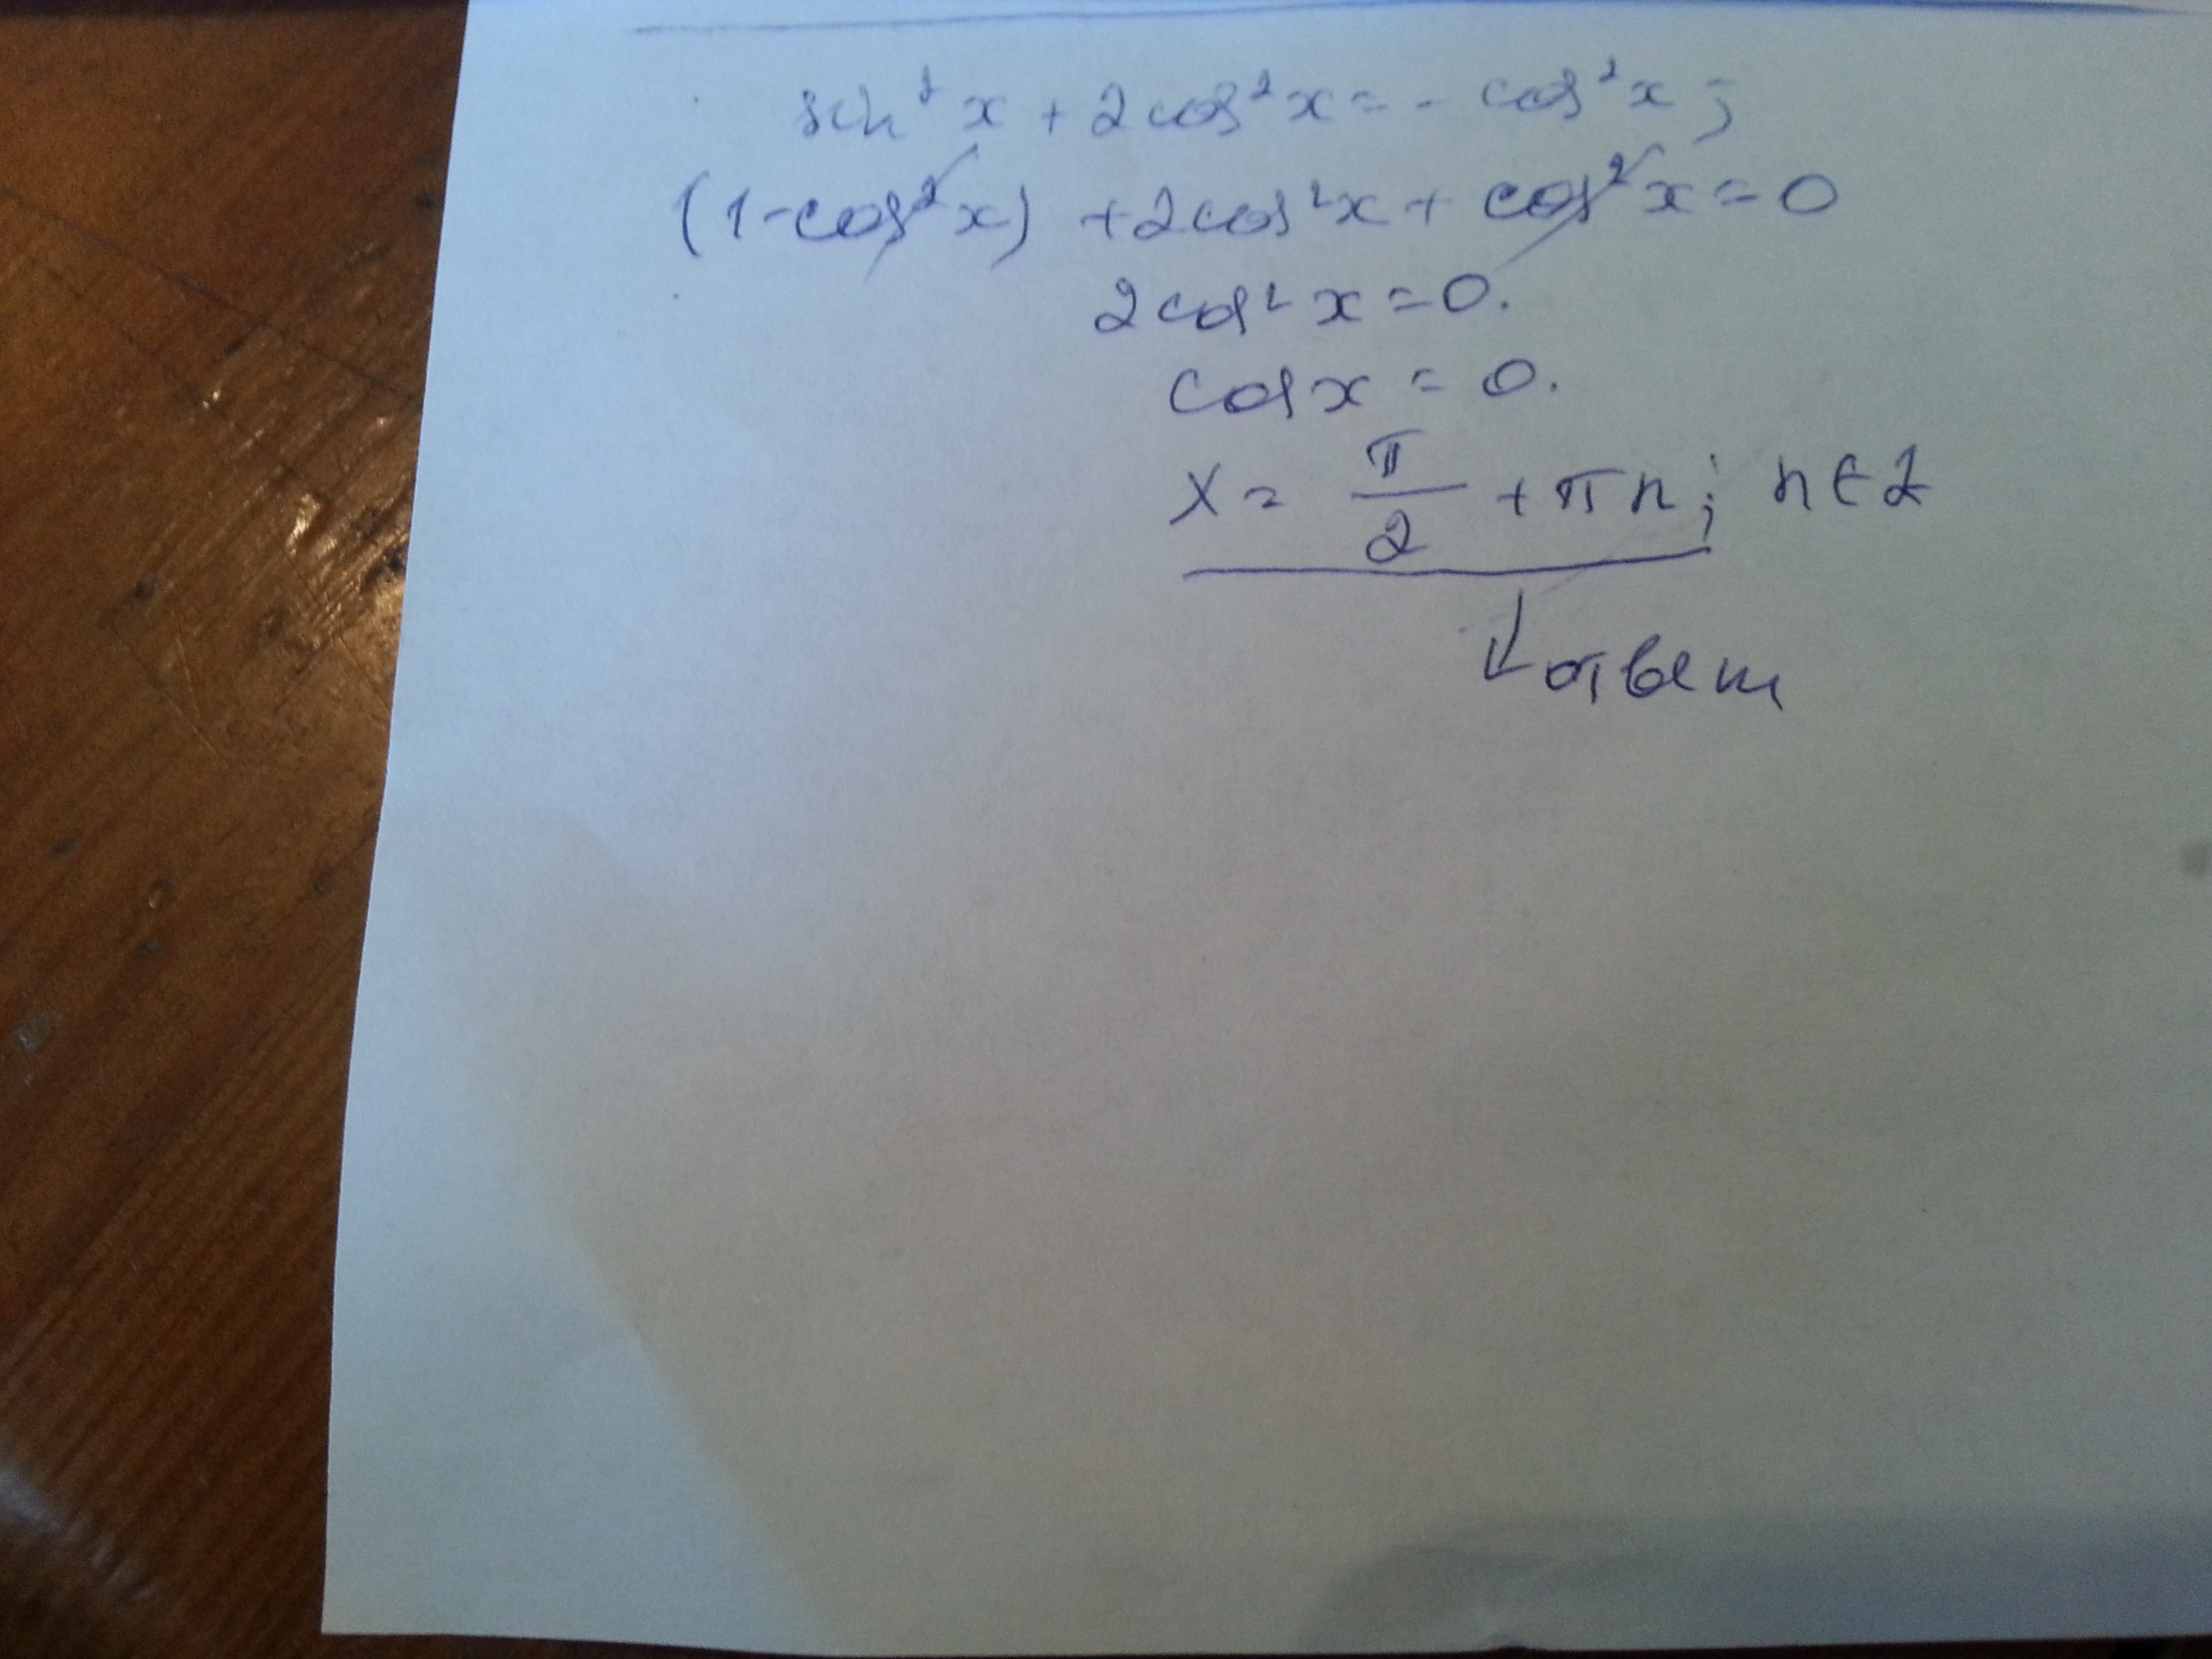 sin²x + 2cos²x = - cos²x;
(1-cos²x) + 2cos²x + cos²x = 0
2cos²x = 0.
cosx = 0.
x = π/2 + πn; n∈Z
ответ